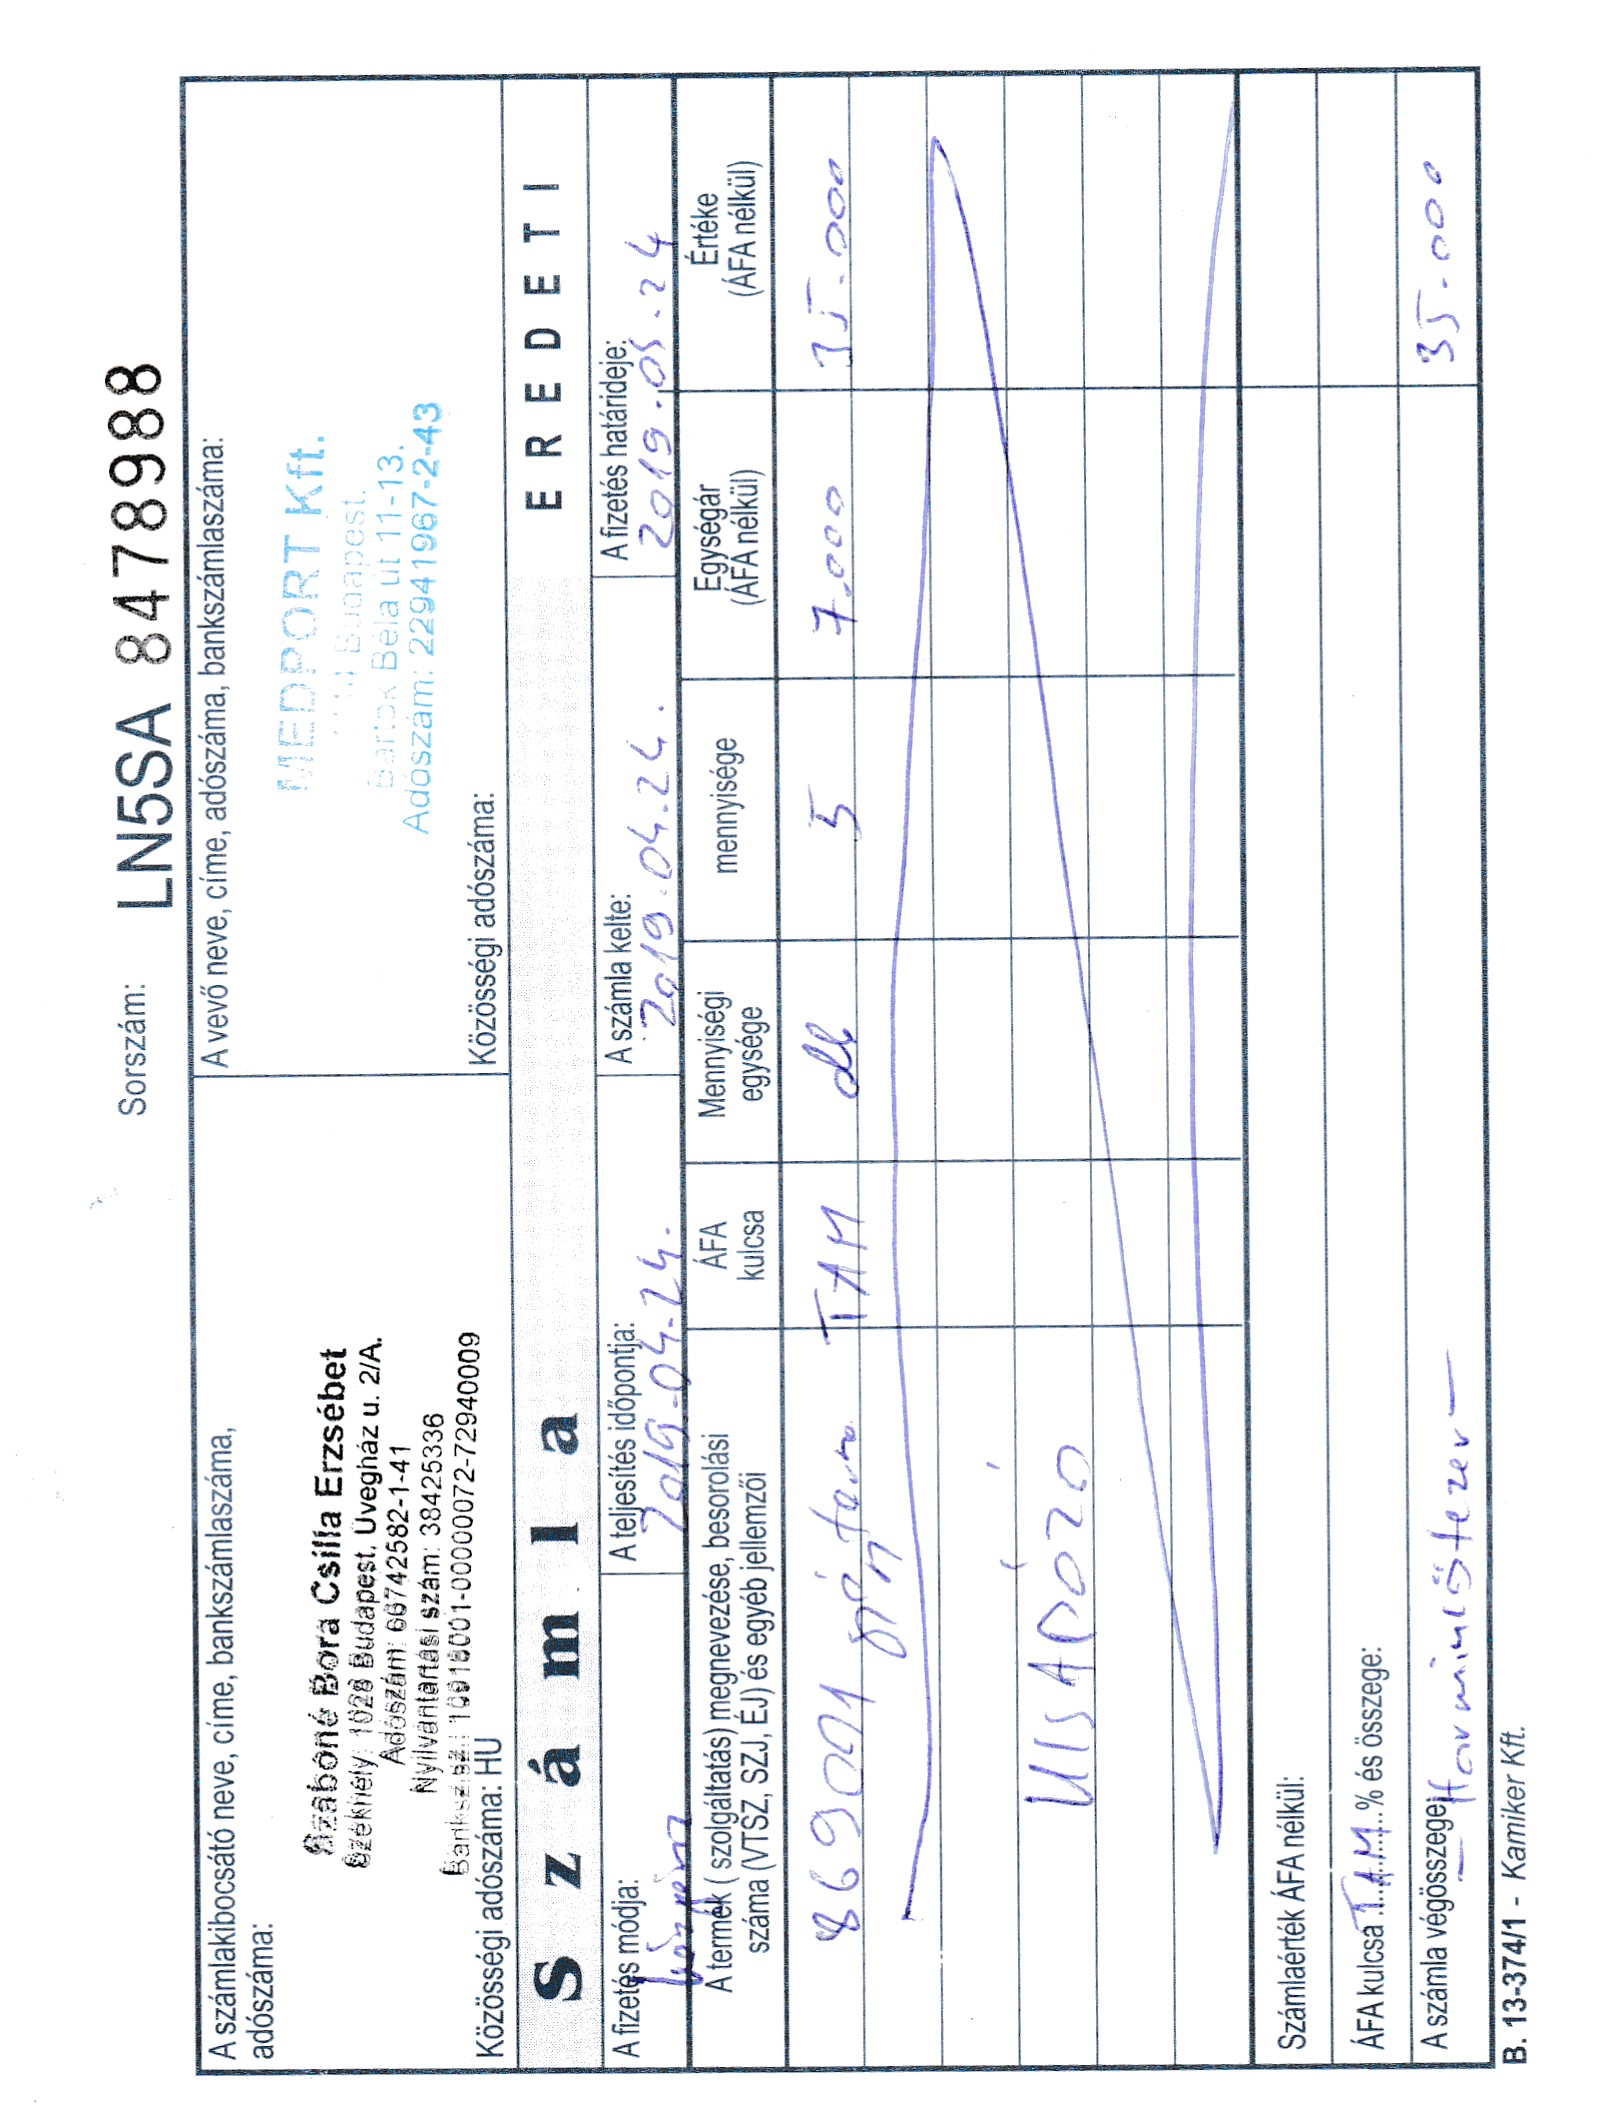 Sorszám: LN5SA 8478988
A számlakibocsátó neve, címe, bankszámlaszáma,
adószáma:
Szabóné Bora Csilla Erzsébet
Székhely: 1028 Budapest, Üvegház u. 2/A.
Adószám: 66742582-1-41
Nyilvántartási szám: 38425336
Banksz.sz.: 10918001-00000072-72940009
Közösségi adószáma: HU
A vevő neve, címe, adószáma, bankszámlaszáma:
MEDPORT Kft.
Budapest,
Bartók Béla út 11-13.
Adószám: 22941967-2-43
Közösségi adószáma:
Számla
EREDETI
A fizetés módja:
A teljesítés időpontja:
2019.04.24.
A számla kelte:
2019.04.24.
A fizetés határideje:
2019.05.24
A termék ( szolgáltatás) megnevezése, besorolási
száma (VTSZ, SZJ, ÉJ) és egyéb jellemzői
ÁFA
kulcsa
Mennyiségi
egysége
mennyisége
Egységár
(ÁFA nélkül)
Értéke
(ÁFA nélkül)
869001 TAM db 5 7.000 35.000
KISADÓZÓ
Számlaérték ÁFA nélkül:
ÁFA kulcsa TAM % és összege:
A számla végösszege: 35.000
- Harmincötezer -
B. 13-374/1 - Kamiker Kft.